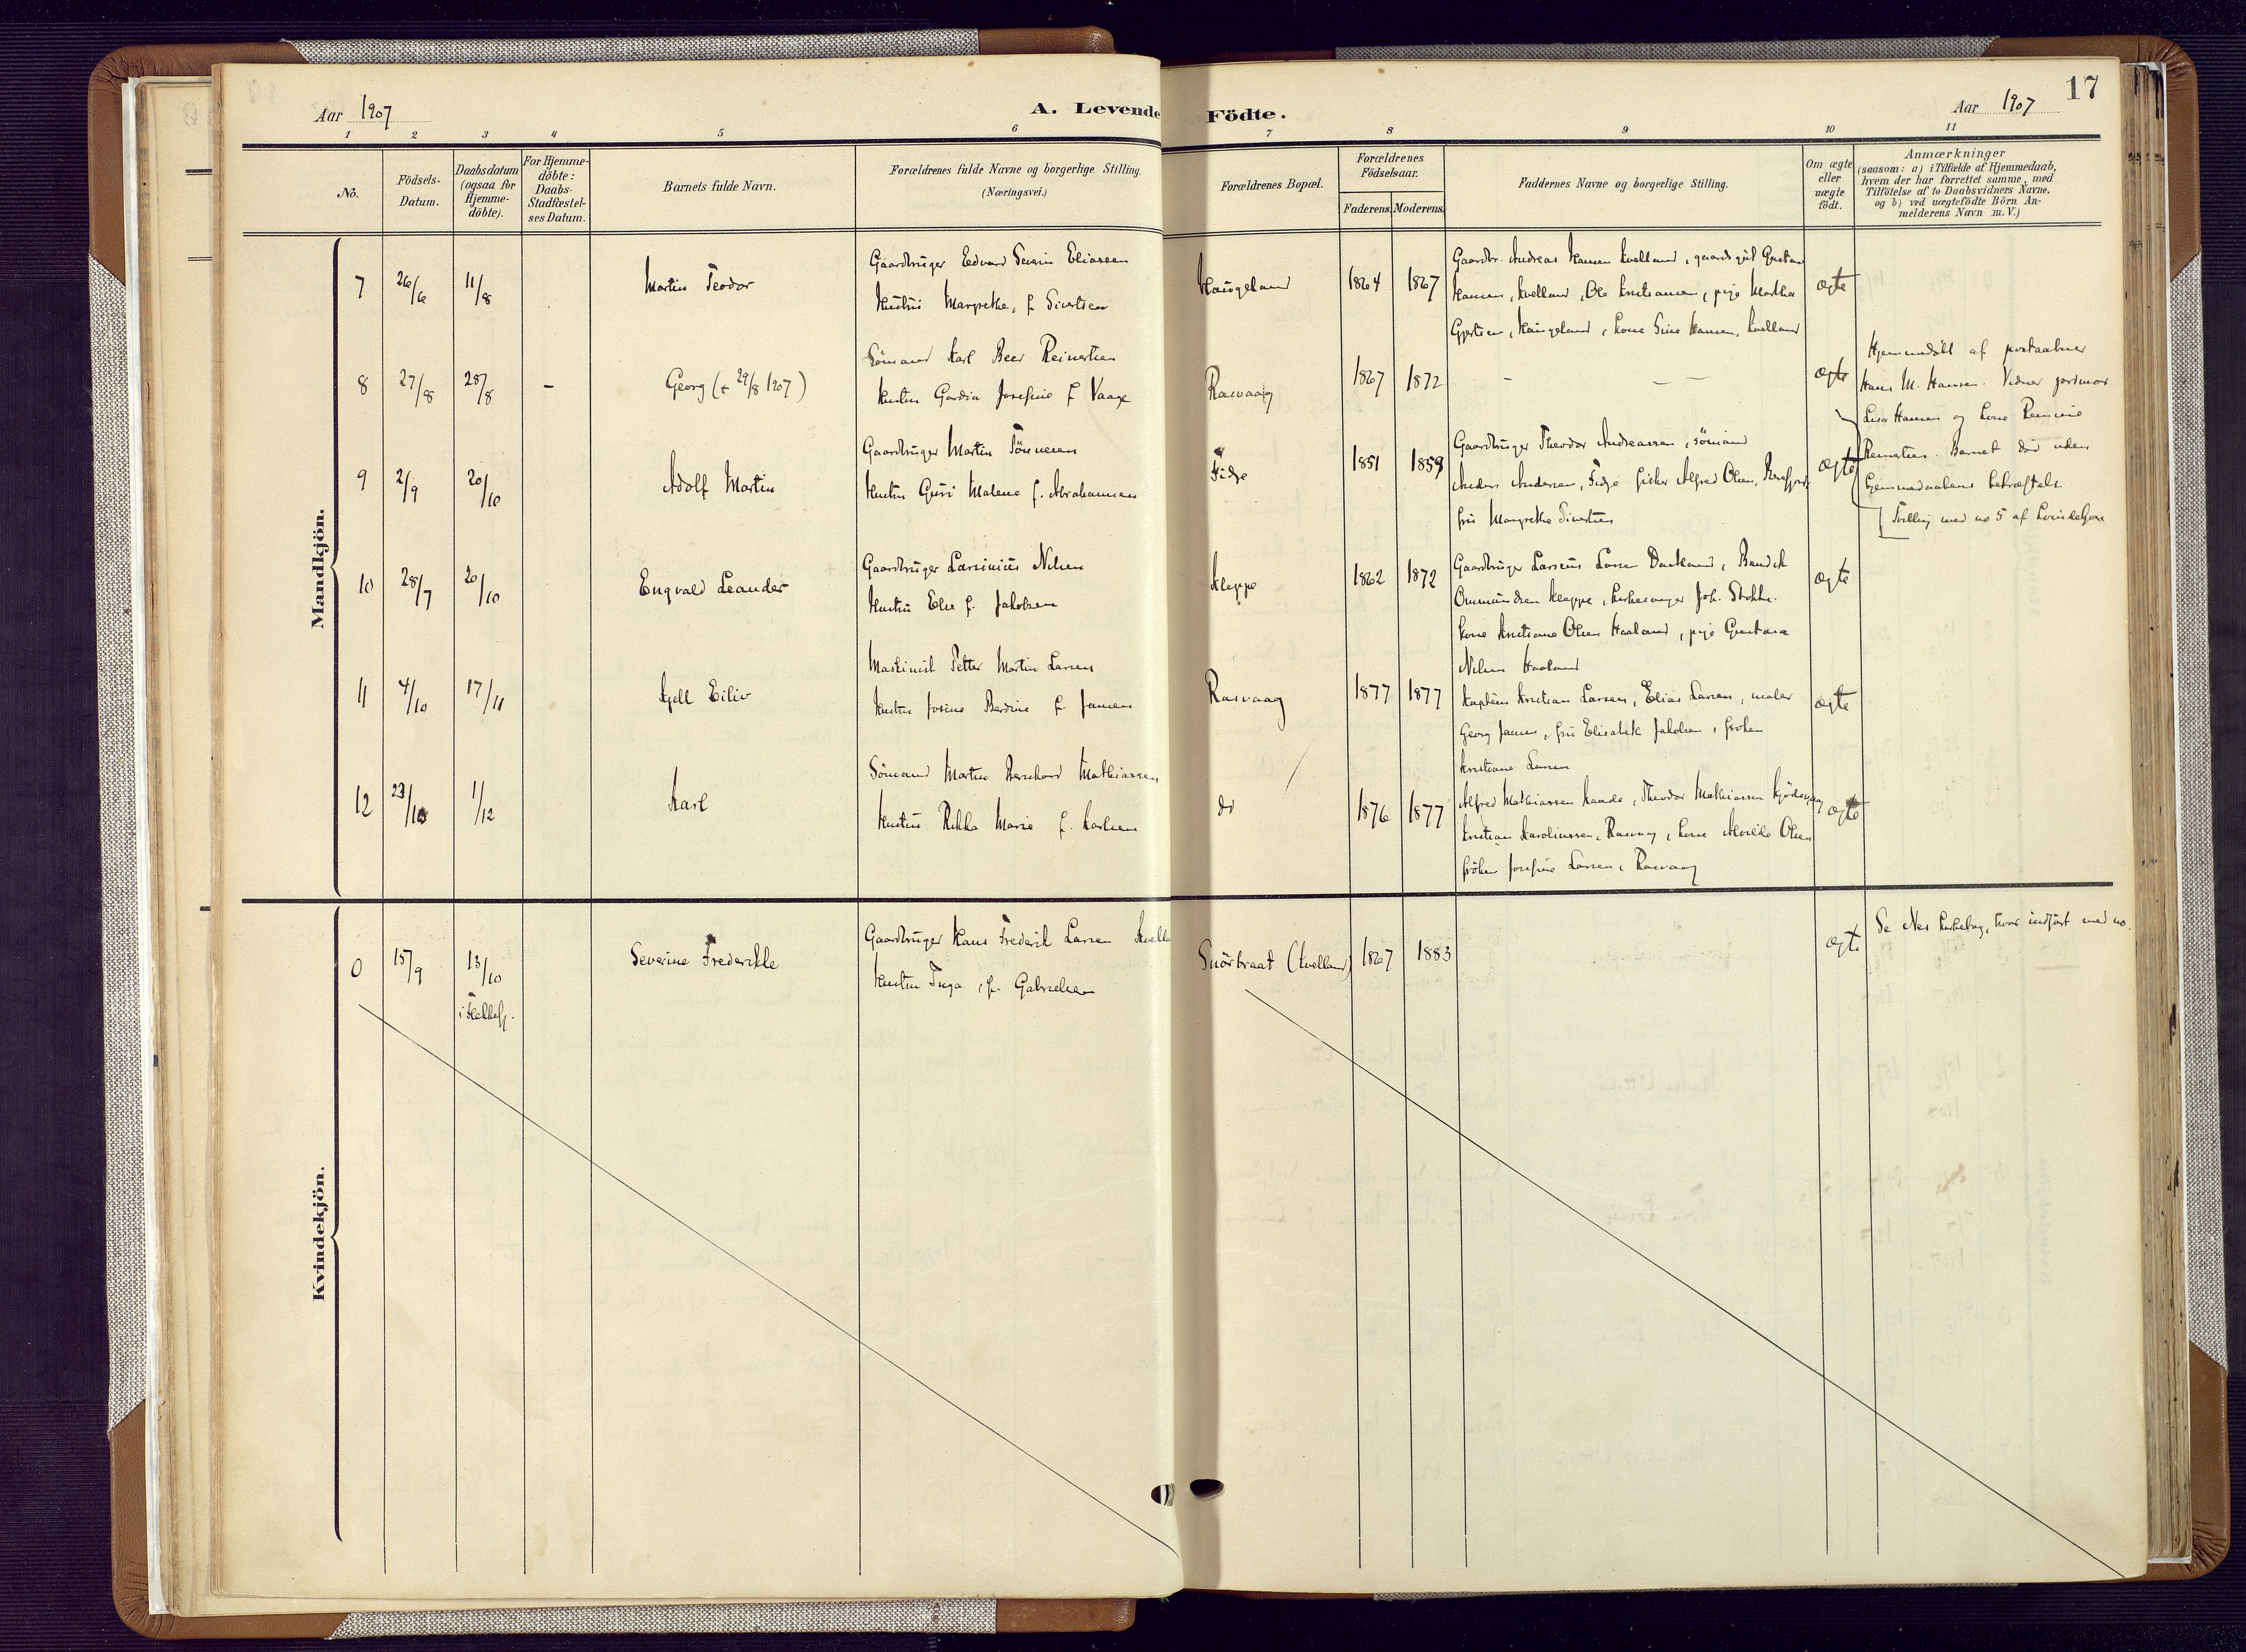 17
Aar 1907
A. Levende Födte.
Aar 1907
1 2 3 4 5 6 7 8 9 10 11
No.
Födsels-Datum.
Daabsdatum (ogsaa for Hjemme-döbte).
For Hjemme-döbte: Daabs-Stadfæstel-ses Datum.
Barnets fulde Navn.
Forældrenes fulde Navne og borgerlige Stilling. (Næringsvei.)
Forældrenes Bopæl.
Forældrenes Födselsaar.
Faderens. Moderens.
Faddernes Navne og borgerlige Stilling.
Om ægte eller uægte födt.
Anmærkninger
(saasom: a) i Tilfælde af Hjemmedaab,
hvem der har forrettet samme, med
Tilföielse af to Daabsvidners Navne.
og b) ved uægtefödte Börn An-
melderens Navn m. V.)
Mandkjön.
7 26/6 11/8 Martin Teodor
Gaardbruger Edvard Severin Eliassen
Hustru Margrethe, f. Sivertsen
Haugeland 1864 1867
Gaardbr. Andreas Hansen Kvelland, gaardsgut Gustav
Hansen, Kvelland, Ole Kristiansen, pige Martha
Gjertsen, Haugeland, kone Sine Hansen, Kvelland
ægte
8 27/8 28/8 - Georg (+ 29/8 1907)
Sömand Karl Beer Reinertsen
Hustru Gardin Josefine f. Vaage
Rasvaag 1867 1872 - - -
ægte
Hjemmedöbt af postaabner
Hans M. Hansen. Vidner jordmor
Lisa Hansen og kone
Reinertsen. Barnet död uden
hjemmedaabens bekræftelse.
9 2/9 20/10 Adolf Martin
Gaardbruger Martin Tönnesen
Hustru Guri Malene f. Abrahamsen
Fidje 1851 1859
Gaardbruger Theodor Andreassen, sömand
Anders Andersen, Fidje fisker Alfred Olsen,
fru Margrethe Sivertsen
ægte
Tvilling med no 5 af kvindekjön
10 28/7 20/10 Engvald Leander
Gaardbruger Larsinius Nilsen
Hustru Else f. Jakobsen
Kleppe 1862 1872
Gaardbruger Larsenius Larsen, Bendik
Ommundsen Kleppe, kirkesanger Joh. Stokke.
kone Kristiane Olsen Haaland, pige Gustava
Nilsen Haaland
ægte
11 4/10 17/11 Kjell Eiliv
Maskinist Petter Martin Larsen
Hustru Josine Berdine f. Jansen
Rasvaag 1877 1877
Kaptein Kristian Larsen, Elias Larsen, maler
Georg Jansen, fru Elisabeth Jakobsen, fröken
Kristiane Larsen
ægte
12 23/10 1/12 Karl
Sömand Martin Bernhard Mathiassen
Hustru Rikka Marie f. Karlsen
do 1876 1877
Alfred Mathiassen, Theodor Mathiassen
Kristian Karoliussen, Rasvaag, kone Olsen
fröken Josefine Larsen, Rasvaag
ægte
Kvindekjön.
0 15/9 13/10 i Flekkefj. Severine Frederikke
Gaardbruger Hans Frederik Larsen Kvella
Hustru Inga, f. Gabrielsen
Snörbraat (Kvelland) 1867 1883
ægte
Se Nes kirkebog, hvor indfört med no.